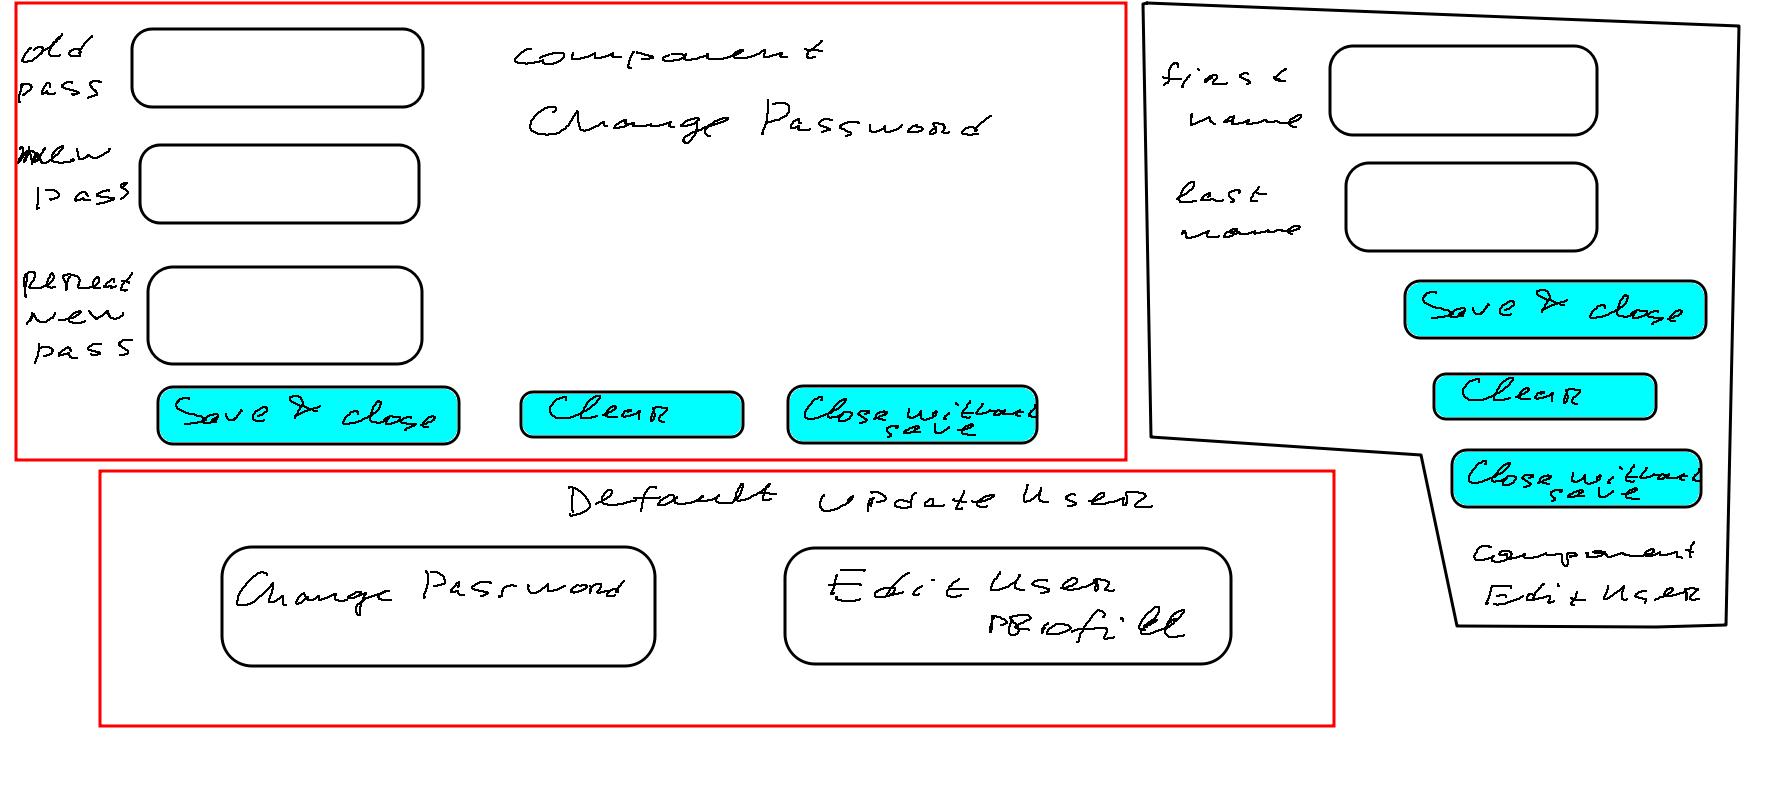 old
pass
component
Change Password
new
pass
Repeat
new
pass
Save & close
Clear
Close without
save
first
name
last
name
Save & close
Clear
Close without
save
component
Edit User
Default update User
Change Password
Edit User
Profill